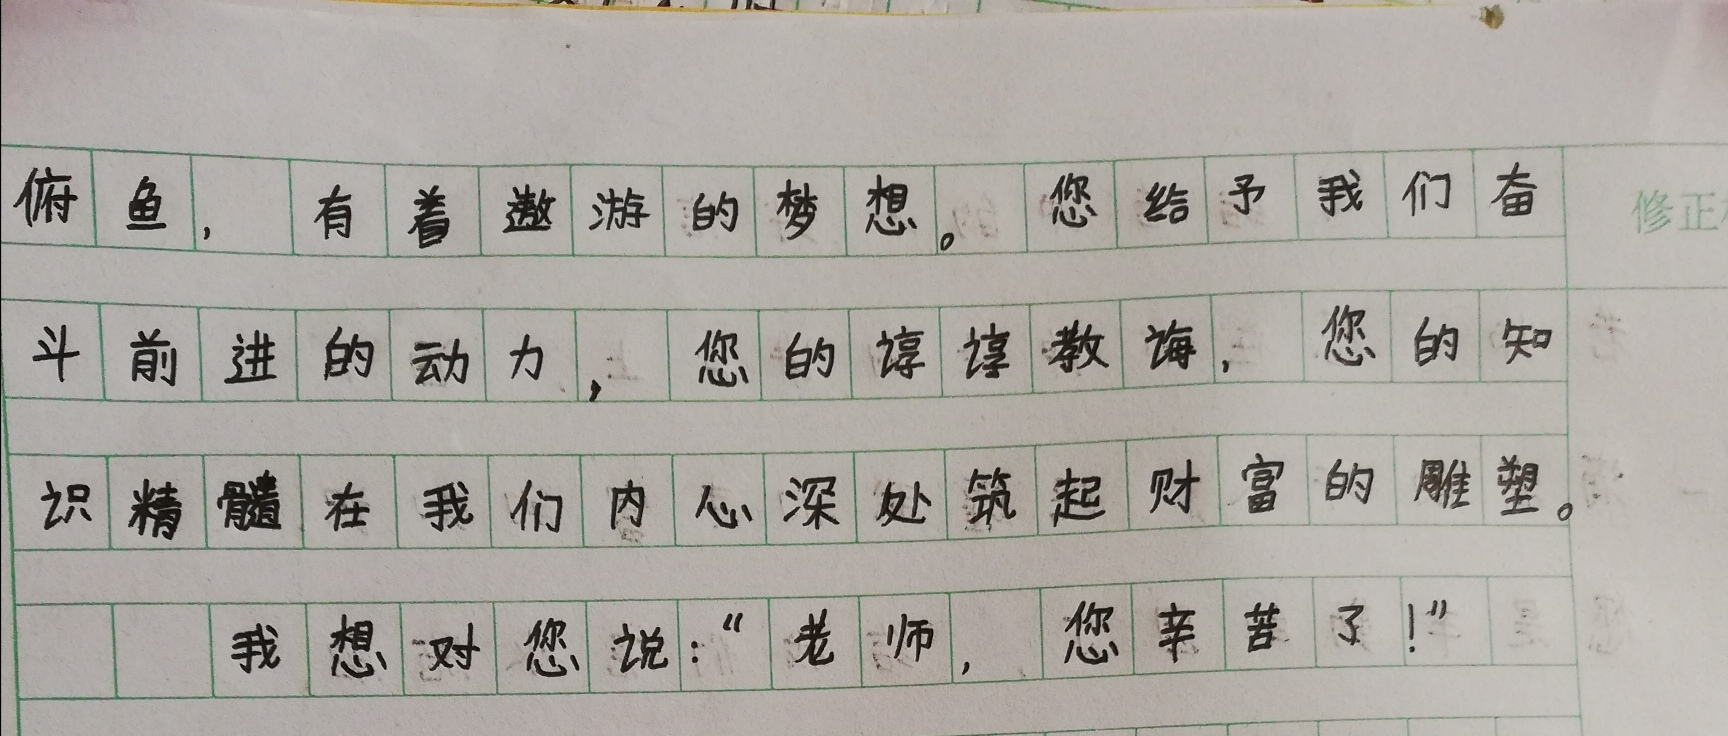 俯鱼，有着遨游的梦想。您给予我们奋
修正
斗前进的动力，您的谆谆教诲，您的知
识精髓在我们内心深处筑起财富的雕塑。
我想对您说：“老师，您辛苦了！”